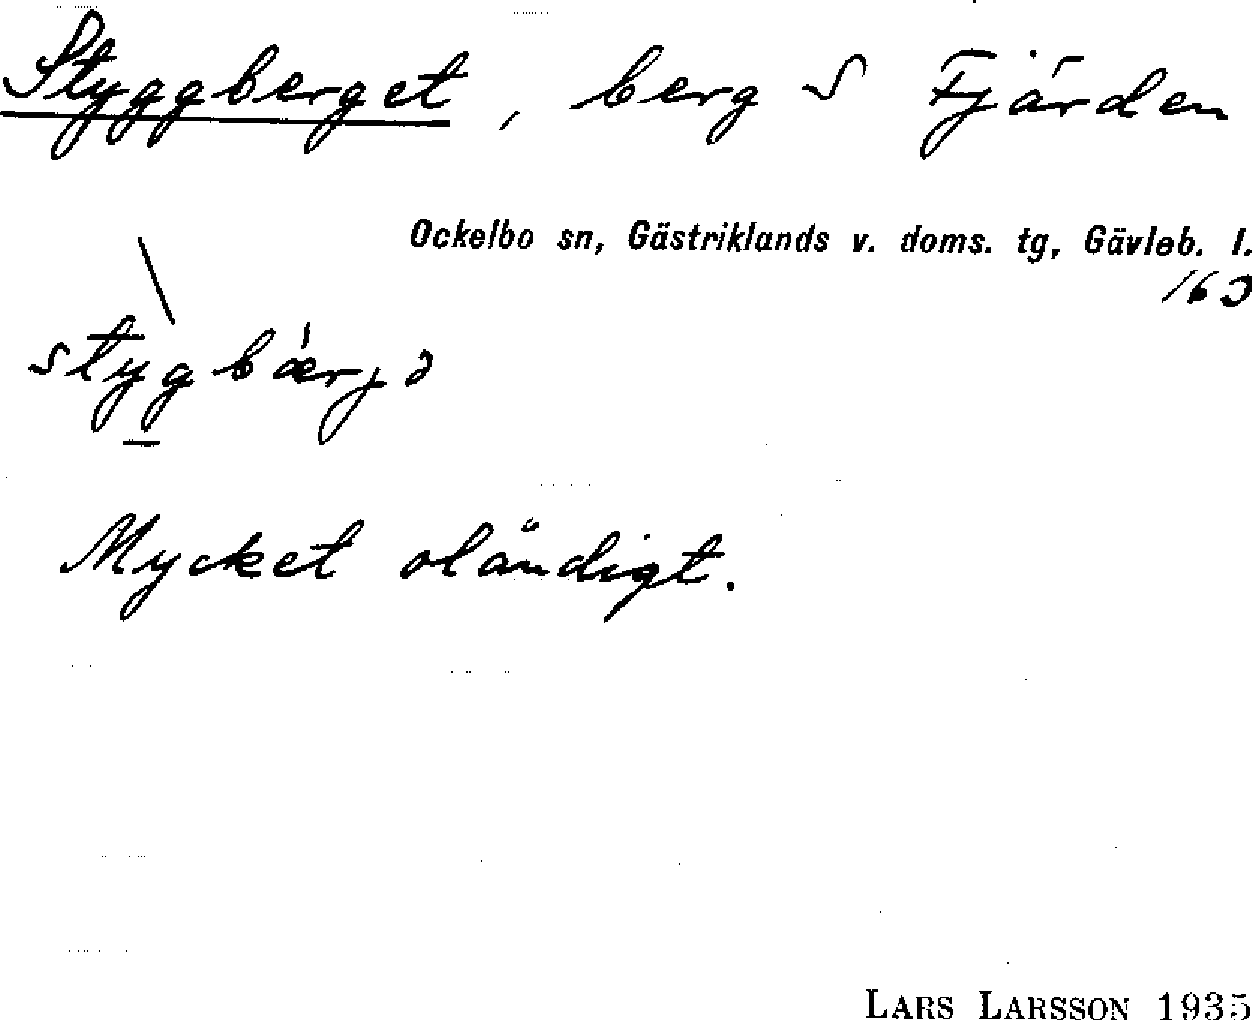 Styggberget, berg S Fjärden
Ockelbo sn, Gästriklands v. doms. tg, Gävleb. l.
Mycket oländigt.
LARS LARSSON 1935